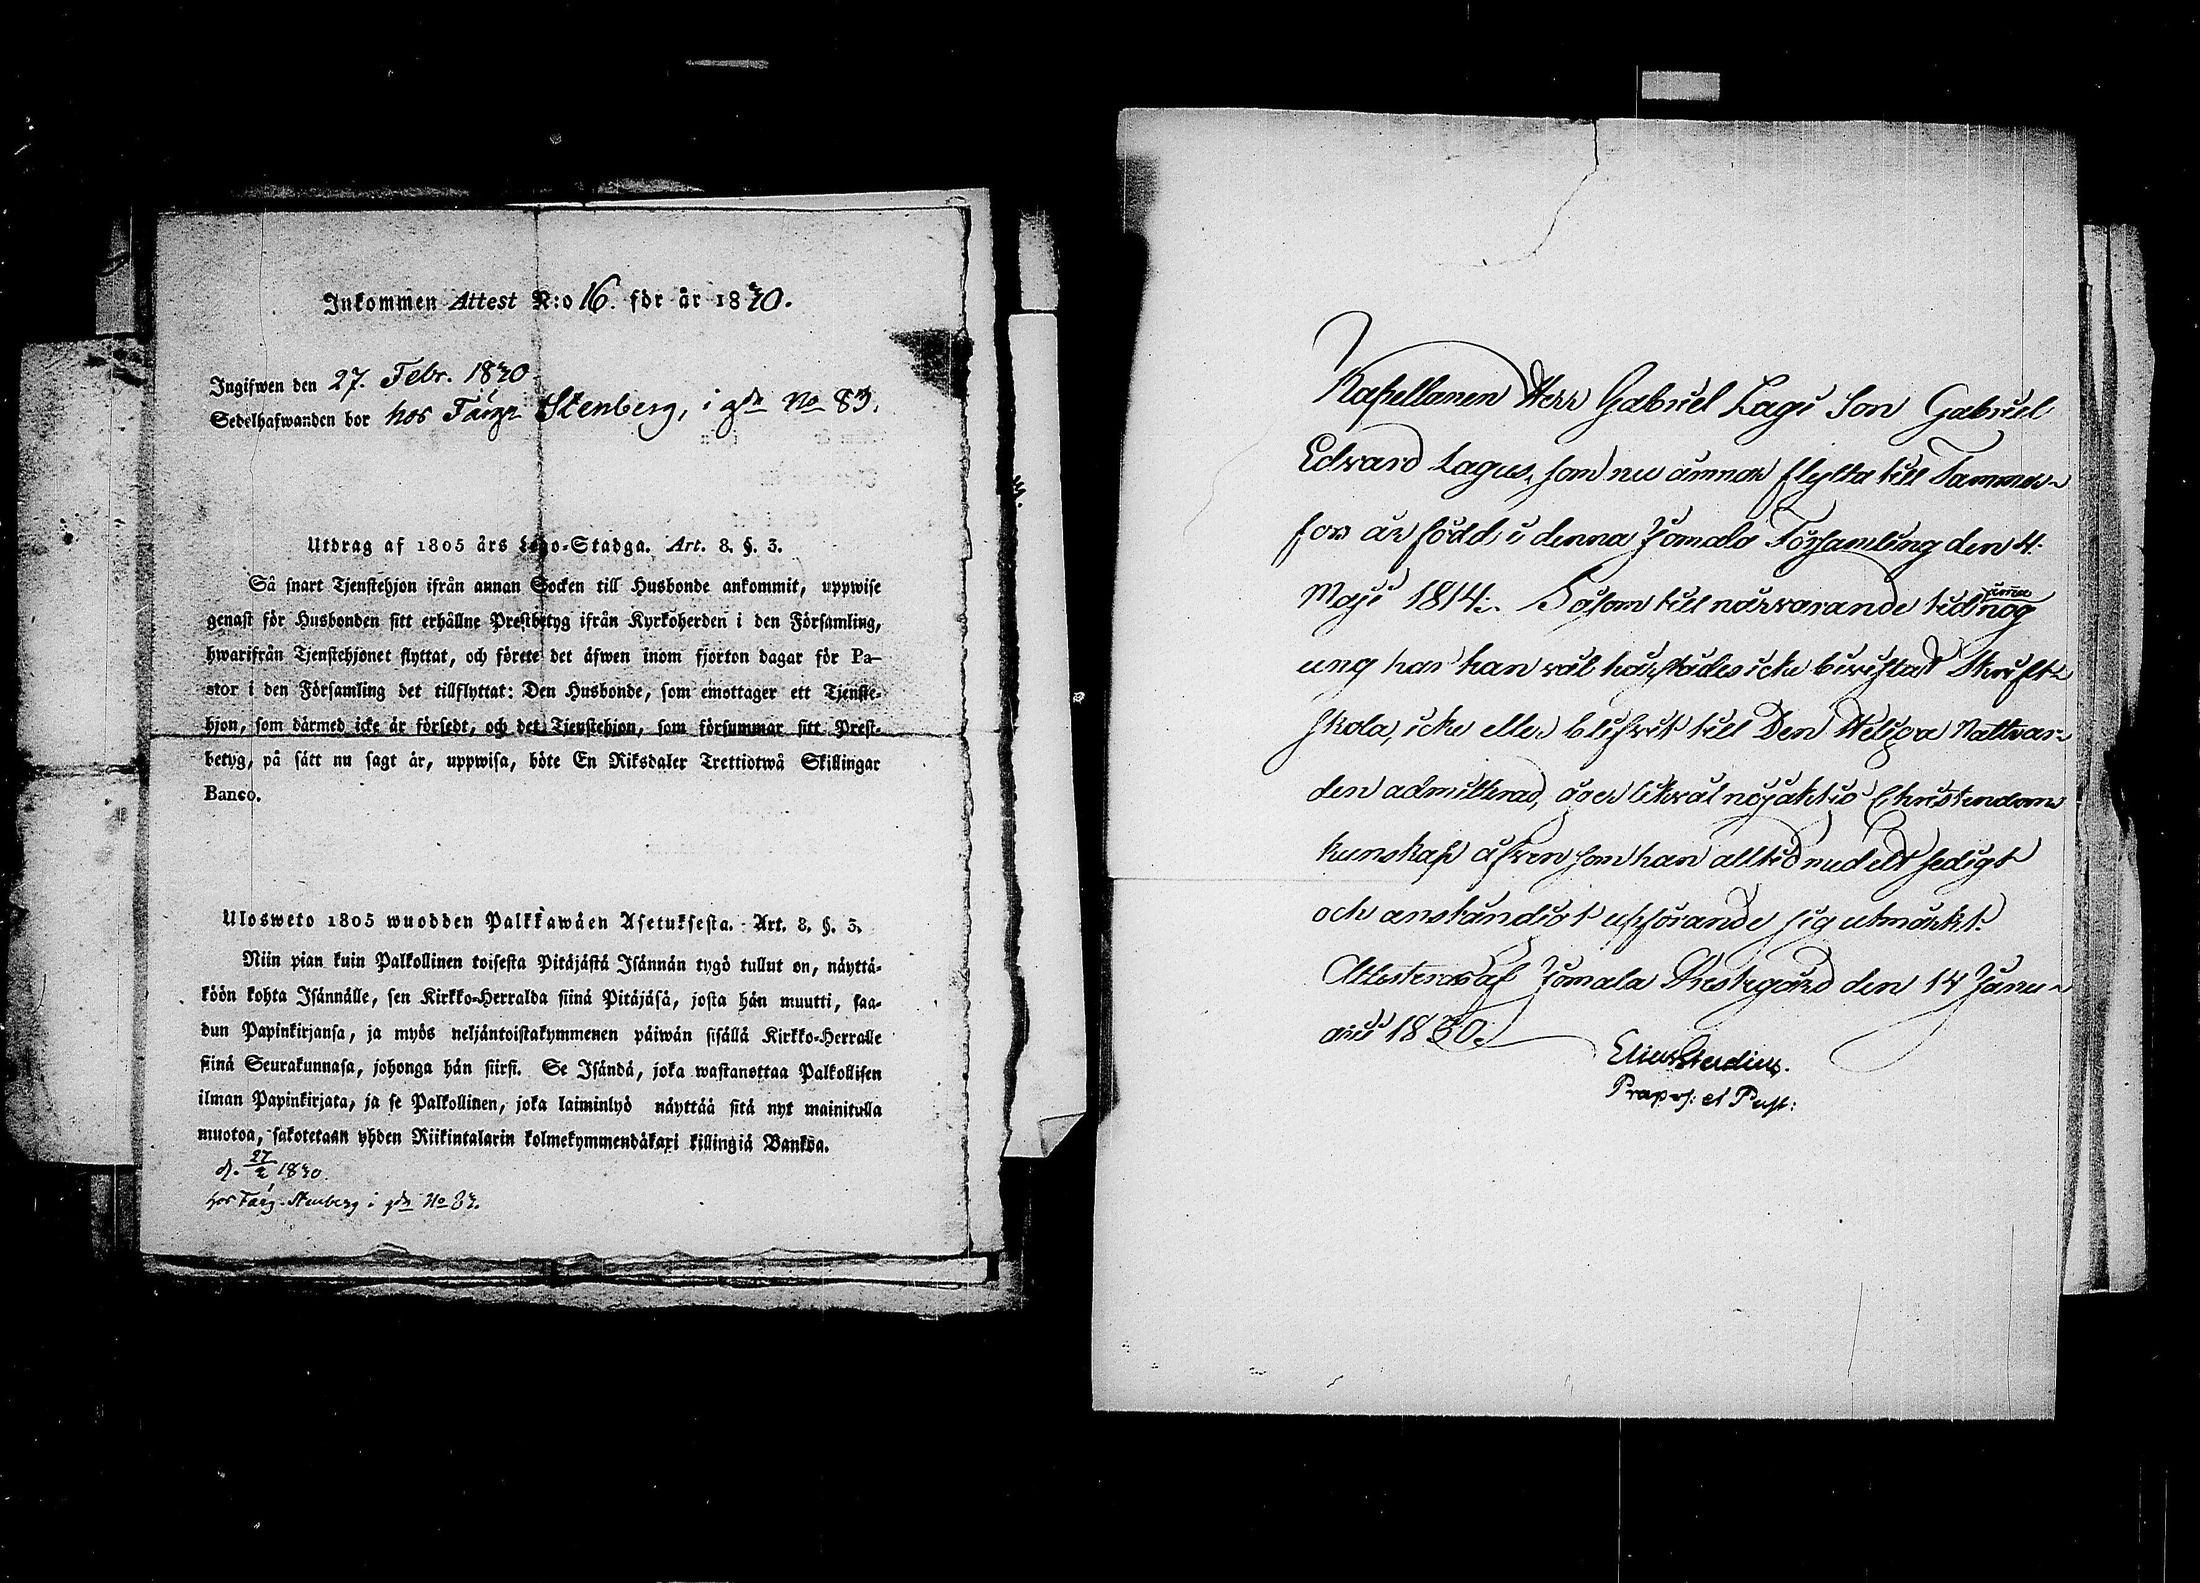 Inkommen Attest N:o 16. för år 1830.
Ingifwen den 27. Febr. 1830
Sedelhafwanden bor hos Färg. Stenberg, i gdn No 83.
Utdrag af 1805 års Lego-Stadga. Art. 8. §. 3.
Så snart Tjenstehjon ifrån annan Socken till Husbonde ankommit, uppwise
genast för Husbonden sitt erhållne Prestbetyg ifrån Kyrkoherden i den Församling,
hwarifrån Tjenstehjonet flyttat, och förete det äfwen inom fjorton dagar för Pa-
stor i den Församling det tillflyttat: Den Husbonde, som emottager ett Tjenste-
hjon, som därmed icke är försedt, och det Tjenstehjon, som försummar sitt Prest-
betyg, på sätt nu sagt är, uppwisa, böte En Riksdaler Trettiotwå Skillingar
Banco.
Ulosweto 1805 wuodden Palkkawäen Asetuksesta. Art. 8. §. 3.
Niin pian kuin Palkollinen toisesta Pitäjästä Isännän tygö tullut on, näyttä-
köön kohta Isännälle, sen Kirkko-Herralda siinä Pitäjäsä, josta hän muutti, saa-
dun Papinkirjansa, ja myös neljäntoistakymmenen päiwän sisällä Kirkko-Herralle
siinä Seurakunnasa, johonga hän siirsi. Se Isändä, joka wastanottaa Palkollisen
ilman Papinkirjata, ja se Palkollinen, joka laiminlyö näyttää sitä nyt mainitulla
muotoa, sakotetaan yhden Riikintalarin kolmekymmendäkaxi killingiä Bankoa.
d. 27/2 1830.
hos Färg. Stenberg i gdn No 83.
Kapellanen Herr Gabriel Lagi Son Gabriel
Edvard Lagus, som nu ämnar flytta till Tammer-
fors är född i denna Jomala Församling den 4.
Maji 1814. Såsom till närvarande tid ännu nog
ung har han väl härstädes icke bivistat Skrift-
skola, icke eller blifvit till Den Heliga Nattvar-
den admitterad, äger likväl nöjaktig Christendoms
kunskap äfven som han alltid med ett sedigt
och anständigt uppförande sig utmärkt.
Attesteras af Jomala Prestegård den 14 Janu-
arii 1830.
Præpos: et Past: